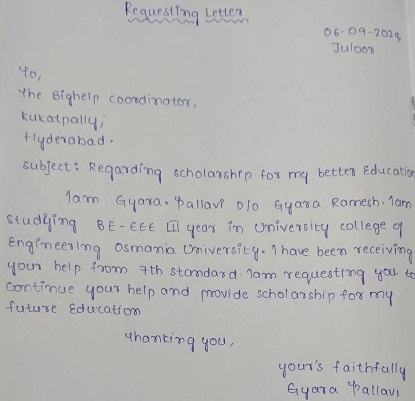 Requesting Letter
06-09-2024
Juloor
To,
The Bighelp coordinator,
Kukatpally,
Hyderabad.
Subject: Regarding scholarship for my better Education
Iam Gyara. Pallavi D/o Gyara Ramesh. Iam
Studying BE-EEE II year in University college of
Engineering Osmania University. I have been receiving
your help from 7th standard. Iam requesting you to
Continue your help and provide scholarship for my
future Education
Thanking you,
your's faithfully
Gyara Pallavi